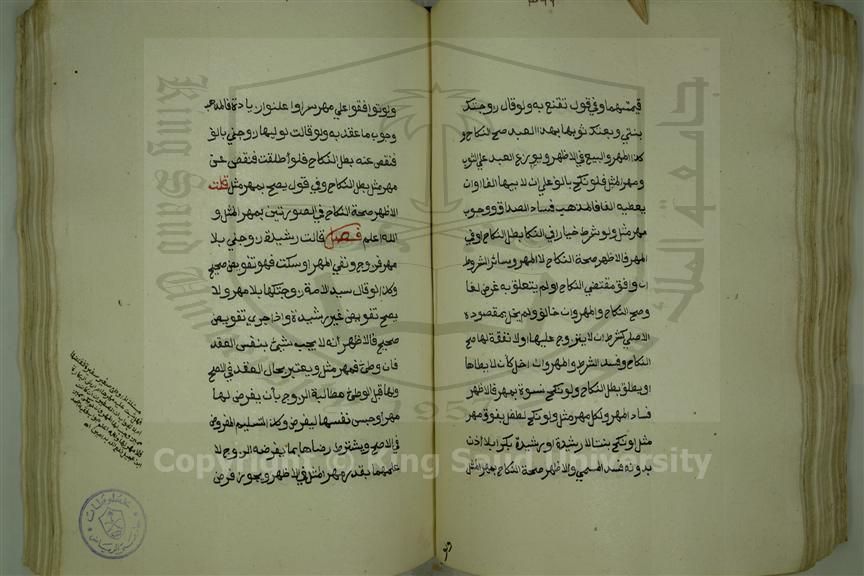 قيمتيهما وفي قول تقنع به ولو قال زوجتك
بنتي وبعتك ثوبها بهذا العبد صح النكاح و
كذا المهر والبيع في الاظهر ويوزع العبد علي الثوب
ومهر المثل فلو نكح بالف علي ان لابيها الفا او ان
يعطيه الفا فالمذهب فساد الصداق ووجوب
مهر مثل ولو شرط خيار في النكاح بطل النكاح او في
المهر فالاظهر صحة النكاح لا المهر وسائر الشروط
ان وافق مقتضي النكاح او لم يتعلق به غرض لغا
وصح النكاح والمهر وان خالف ولم يخل بمقصوده
الاصلي كشرط ان لا يتزوج عليها او لا نفقة لها صح
النكاح وفسد الشرط والمهر وان اخل كأن لا يطأها
او يطلق بطل النكاح ولو نكح نسوة بمهر فالاظهر
فساد المهر ولكل مهر مثل ولو نكح لطفل بفوق مهر
مثل او نكح بنتا لا رشيدة او رشيدة بكرا بلا اذن
بدونه فسد المسمي والاظهر صحة النكاح بمهر المثل
ولو
ولو توافقوا علي مهر سرا واعلنوا زيادة فالمذهب
وجوب ما عقد به ولو قالت لوليها زوجني بالف
فنقص عنه بطل النكاح فلو اطلقت فنقص عن
مهر مثل بطل النكاح وفي قول يصح بمهر مثل قلت
الاظهر صحة النكاح في الصورتين بمهر المثل و
الله اعلم فصل قالت رشيدة زوجني بلا
مهر فزوج ونفي المهر او سكت فهو تفويض صحيح
وكذا لو قال سيد الامة زوجتكها بلا مهر ولا
يصح تفويض غير رشيدة واذا جري تفويض
صحيح فالاظهر انه لا يجب شيئ بنفس العقد
فان وطئ فمهر مثل ويعتبر بحال العقد في الاصح
ولها قبل الوطئ مطالبة الزوج بأن يفرض لها
مهرا وحبس نفسها ليفرض وكذا لتسليم المفروض
في الاصح ويشترط رضاها بما يفرضه الزوج لا
علمهما بقدر مهر المثل في الاظهر ويجوز فرض
جامعة الملك
King Saud Un
1957
Copyright © King Saud University